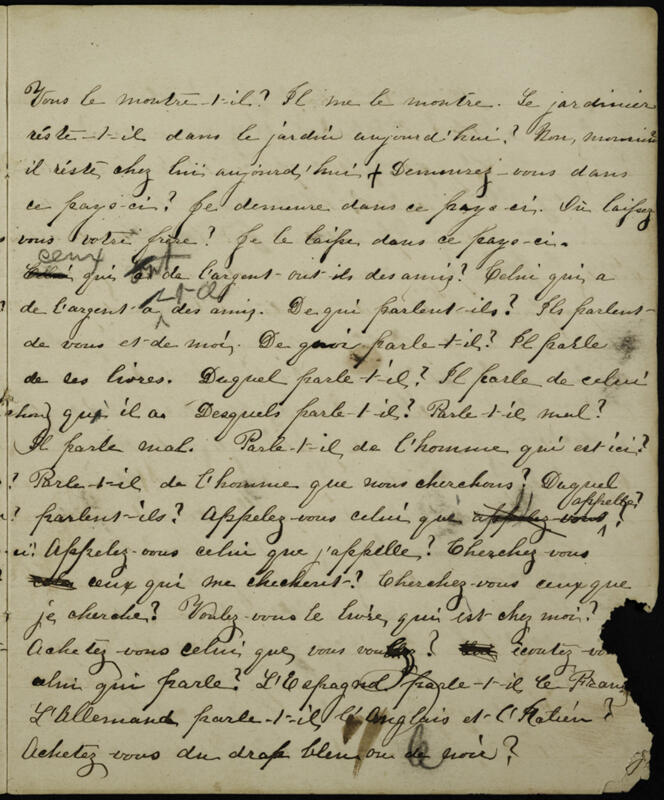 Vous le montre-t-il? Il me le montre. Le jardinier
réste-t-il dans le jardin aujourd'hui? Non, monsieur
il réste chez lui aujourd'hui + Demeurez-vous dans
ce pays-ci? Je demeure dans ce pays-ci. Où laissez
vous votre frère? Je le laisse dans ce pays-ci.
ceux ont
qui de l'argent-ont ils des amis? Celui qui a
t-il
de l'argent-a des amis. De qui parlent-ils? Ils parlent-
de vous et-de moi. De quoi parle-t-il? Il parle
de ses livres. Duquel parle-t-il? Il parle de celui
qui il a. Desquels parle-t-il? Parle-t-il mal?
Il parle mal. Parle-t-il de l'homme qui est ici?
? Parle-t-il de l'homme que nous cherchons? Duquel
appelle?
? parlent-ils? Appelez-vous celui que appelez-vous?
Appelez-vous celui que j'appelle? Cherchez-vous
ceux qui me chechent? Cherchez-vous ceux que
je cherche? Voulez-vous le livre qui est chez moi?
Achetez-vous celui que vous voulez? écoutez-vous
celui qui parle? L'Espagnol parle-t-il le Franç
L'Allemand parle-t-il l'Anglais et l'Italién?
Achetez-vous du drap bleu ou de noir?